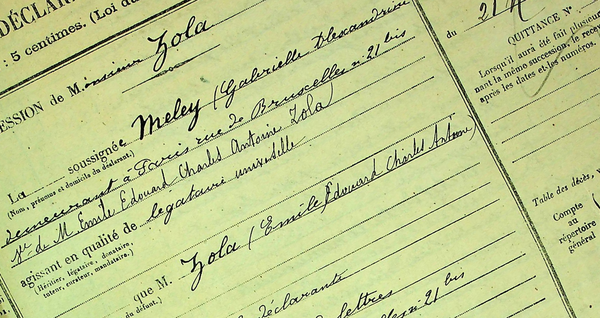 DÉCLAR
: 5 centimes. (Loi du
ESSION de M. onsieur Zola
La soussignée Meley (Gabrielle Alexandrine
(Nom, prénoms et domicile du déclarant).
demeurant à Paris rue de Bruxelles n° 21 bis
Ve de M. Emile Edouard Charles Antoine Zola)
agissant en qualité de légataire universelle
(Héritier, légataire, donataire,
tuteur, curateur, mandataire.)
que M. Zola (Emile Edouard Charles Antoine)
du défunt.)
déclarante
lettres
n° 21 bis
du 21
QUITTANCE N°
Lorsqu'il aura été fait plusieur
nant la même succession, le rece
après les dates et les numéros.
Table des décès, v
Compte
au
répertoire
général